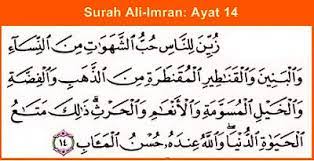 Surah Ali-Imran: Ayat 14
زُيِّنَ لِلنَّاسِ حُبُّ الشَّهَوَاتِ مِنَ النِّسَاءِ
وَالْبَنِينَ وَالْقَنَاطِيرِ الْمُقَنطَرَةِ مِنَ الذَّهَبِ وَالْفِضَّةِ
وَالْخَيْلِ الْمُسَوَّمَةِ وَالْأَنْعَامِ وَالْحَرْثِ ۗ ذَٰلِكَ مَتَاعُ
الْحَيَاةِ الدُّنْيَا ۖ وَاللَّهُ عِندَهُ حُسْنُ الْمَآبِ ١٤